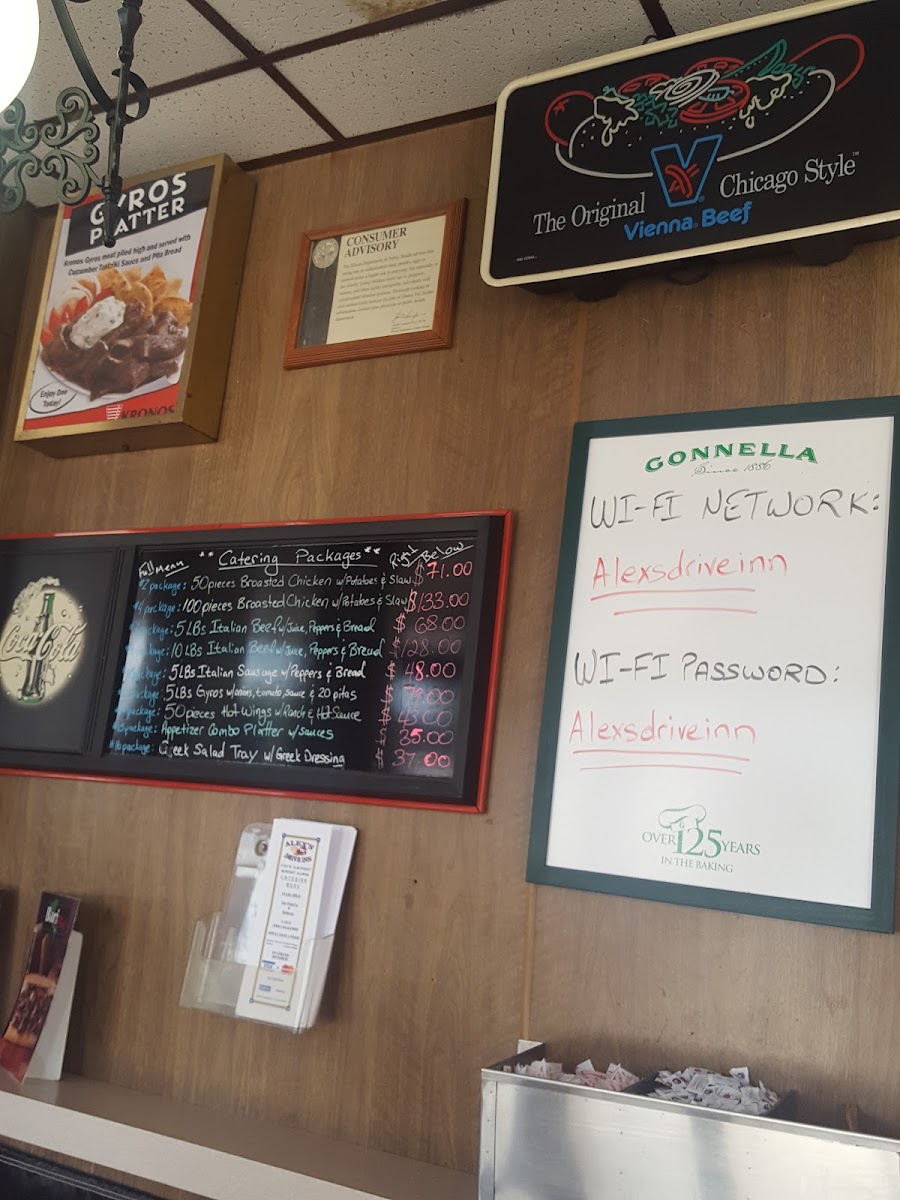 GYROS
PLATTER
Kronos Gyros meat piled high and served with
Cucumber Tzatziki Sauce and Pita Bread
Enjoy One
Today!
KRONOS
CONSUMER
ADVISORY
The Original
Vienna Beef
Chicago Style™
Coca-Cola
Full Menu
** Catering Packages**
Right Below
#2 package: 50 pieces Broasted Chicken w/Potatoes & Slaw $71.00
package: 100 pieces Broasted Chicken w/Potatoes & Slaw $133.00
package: 5 LBs Italian Beef w/Juice, Peppers & Bread $68.00
package: 10 LBs Italian Beef w/Juice, Peppers & Bread 128.00
package: 5LBs Italian Sausage w/Peppers & Bread $48.00
package: 5LBs Gyros w/onions, tomato, sauce & 20 pitas
package: 50 pieces Hot Wings w/Ranch & Hot Sauce
package: Appetizer Combo Platter w/sauces 35.00
package: Greek Salad Tray w/Greek Dressing 37.00
GONNELLA
Since 1886
WI-FI NETWORK:
Alexsdriveinn
WI-FI PASSWORD:
Alexsdriveinn
OVER 125 YEARS
IN THE BAKING
ALEX'S
DRIVE INN
CATERING
MENU